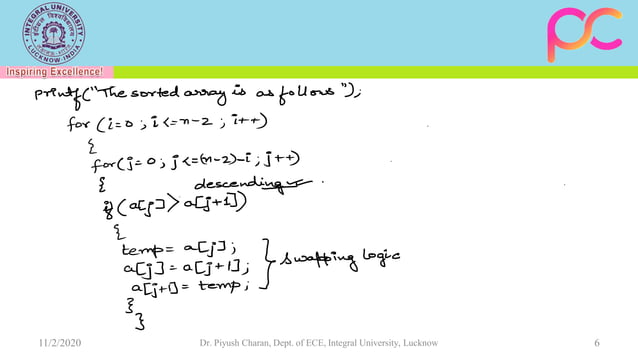 INTEGRAL UNIVERSITY
LUCKNOW-INDIA
Inspiring Excellence!
pc
printf("The sorted array is as follows");
for (i=0 ; i<=n-2 ; i++)
{
for(j=0; j<=(n-2)-i ; j++)
{ descending ✓ .
if (a[j] > a[j+1])
{
temp= a[j];
a[j] = a[j+1]; } Swapping Logic
a[j+1] = temp;
}
}
11/2/2020 Dr. Piyush Charan, Dept. of ECE, Integral University, Lucknow 6